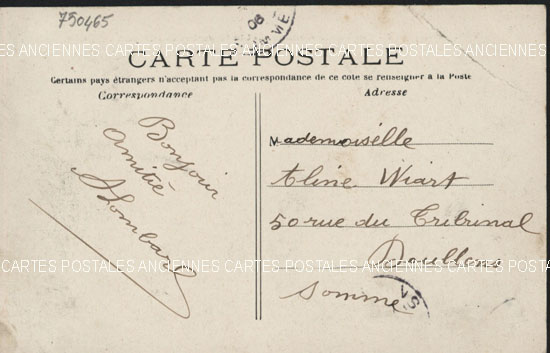 750465
CARTES POSTALES ANCIENNES CARTES POSTALES ANCIENNES CARTES POSTALES ANCIENNES
CARTE POSTALE
Certains pays étrangers n'acceptant pas la correspondance de ce cote se renseigner à la Poste
Correspondance
Adresse
Bonjour
amitié
Mademoiselle
Aline Wiart
50 rue du Tribrinal
Doullens
Somme
CARTES POSTALES ANCIENNES CARTES POSTALES ANCIENNES CARTES POSTALES ANCIENNES